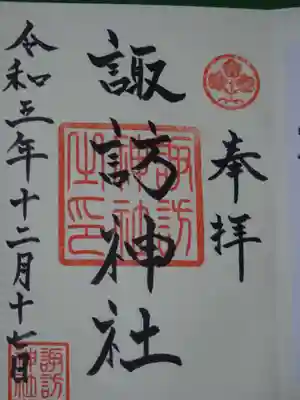 奉拝
諏訪神社
諏訪神社之印
令和三年十二月十七日
諏訪神社